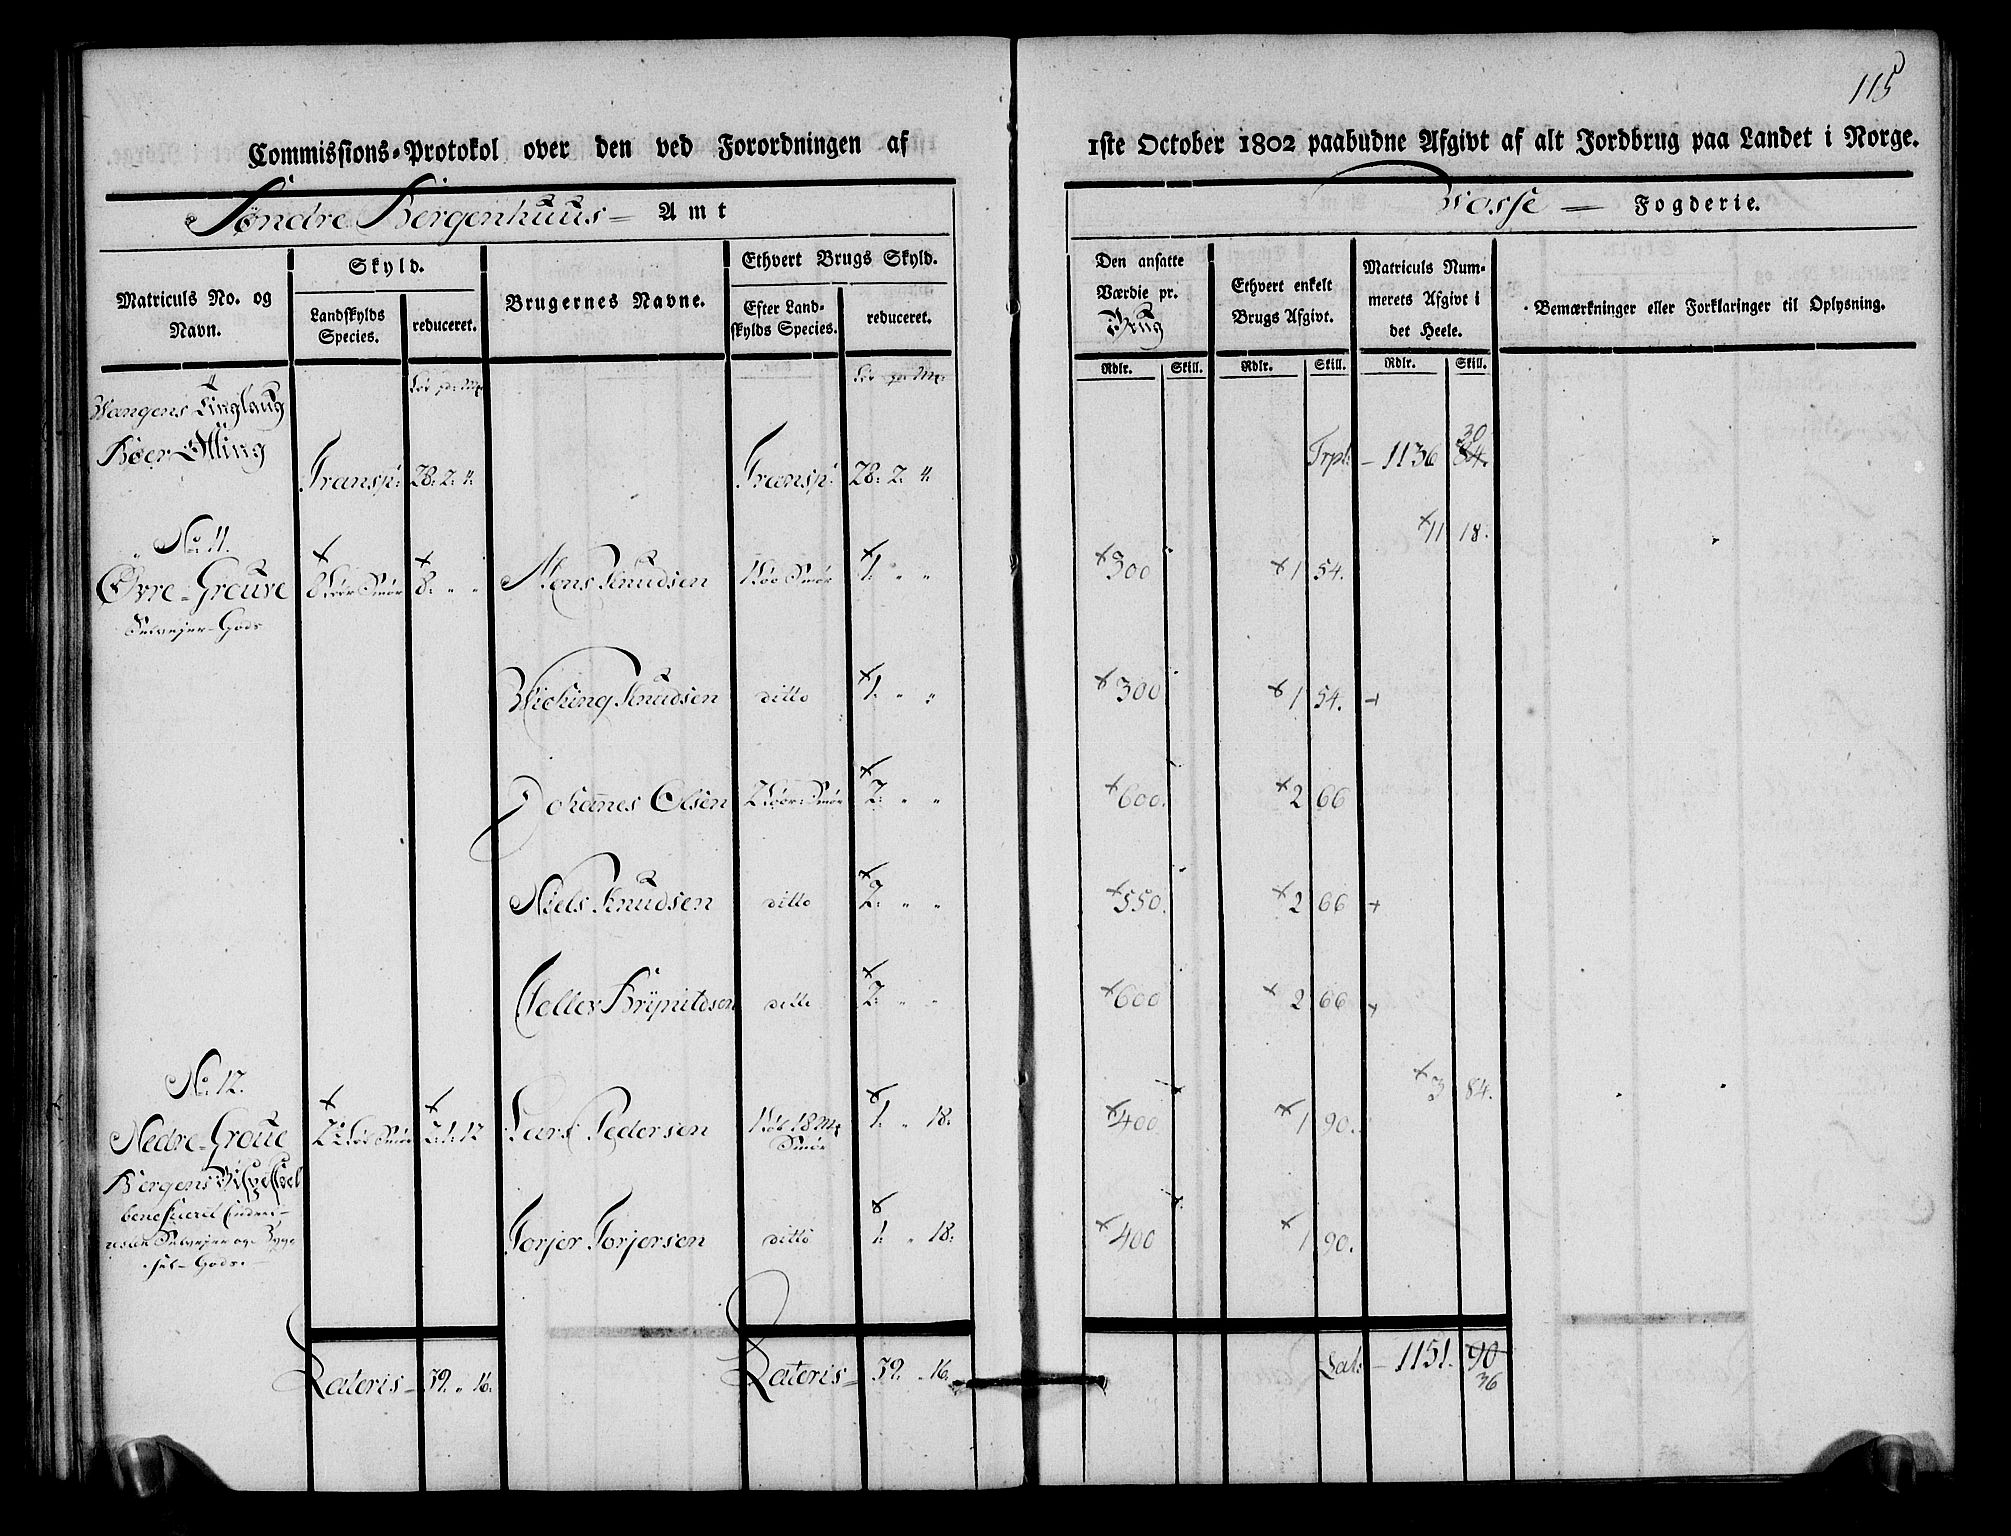 115
Commissions-Protokol over den ved Forordningen af 1ste October 1802 paabudne Afgivt af alt Jordbrug paa Landet i Norge.
Søndre Bergenhuus Amt
Vosse Fogderie.
Matriculs No. og Navn.
Skyld.
Landskylds Species.
reduceret.
Brugernes Navne.
Ethvert Brugs Skyld.
Efter Landskylds Species.
reduceret.
Den ansatte Værdie pr. Brug
Ethvert enkelt Brugs Afgivt.
Matriculs Nummerets Afgivt i det Heele.
Bemærkninger eller Forklaringer til Oplysning.
Rdlr. Skill. Rdlr. Skill. Rdlr. Skill.
Wangens Tinglaug
Bøer Otting
Transp: 28. 2. 4. Transp: 28. 2. 4. Trpt: 1136 30 84.
No. 11. 11 18.
Øvre-Grouve 8 Løb Smør 8. " " Mons Knudsen 1 Løb Smør 1. " " 300 1 54.
Selvejer-Gods
Wiching Knudsen ditto 1. " " 300 1 54.
Johannes Olsen 2 Løb Smør 2. " " 600. 2 66
Niels Knudsen ditto 2. " " 550. 2 66
Zelles Brynildsen ditto 2. " " 600 2 66
No. 12. 3 84.
Nedre-Groue 2½ Løb Smør 2. 1. 12 Lars Pedersen 1 Løb 18 Mk Smør 1. " 18. 400 1 90.
Bergens
beneficeret
Selvejer og Bygsel-Gods.
Torjer Torjersen ditto 1. " 18. 400 1 90.
Lateris 39. " 16. Lateris 39. " 16. Lat: 1151. 90
36